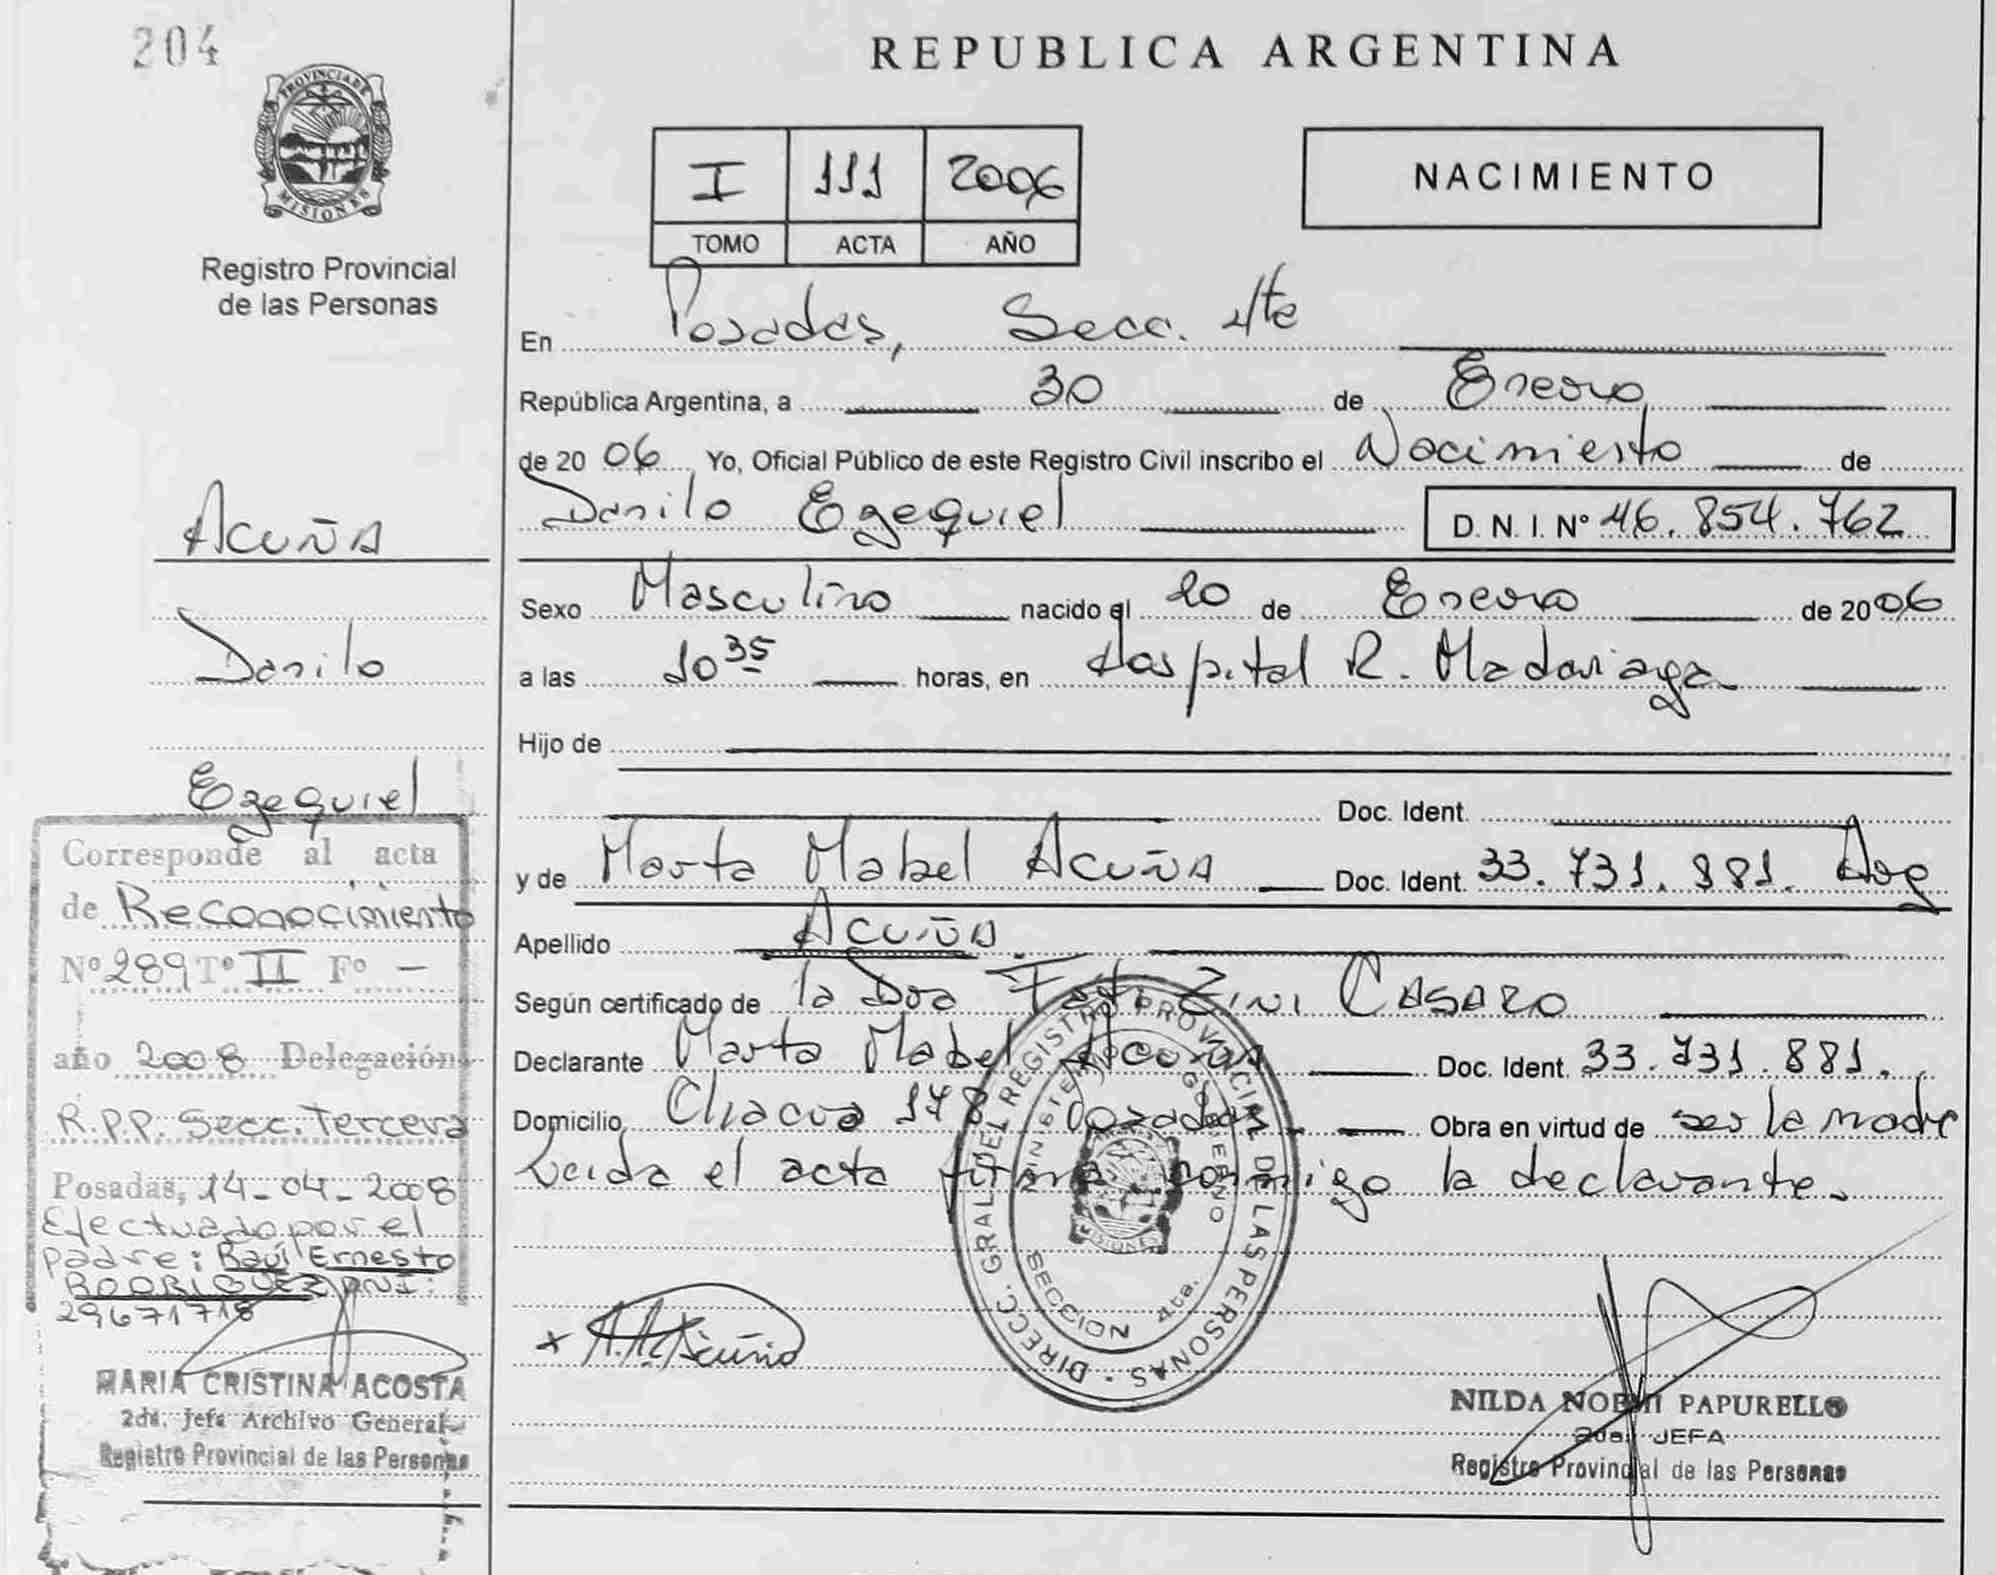 204
PROVINCIA DE
MISIONES
Registro Provincial
de las Personas
REPUBLICA ARGENTINA
I 111 2006
TOMO ACTA AÑO
NACIMIENTO
En Posadas, Secc. 4ta
República Argentina, a 30 de Enero
de 2006 Yo, Oficial Público de este Registro Civil inscribo el Nacimiento de
Danilo Ezequiel D. N. I. Nº 46.854.762
Sexo Masculino nacido el 20 de Enero de 2006
a las 10 35 horas, en Hospital R. Madariaga
Hijo de
Doc. Ident.
y de Marta Mabel Acuña Doc. Ident. 33.731.881. Arg
Apellido Acuña
Según certificado de la Dra Zini Casaro
Declarante Marta Mabel Acuña Doc. Ident. 33.731.881.
Domicilio Chacra 178 Posadas. Obra en virtud de ser la madre
Leida el acta firma conmigo la declarante.
M. M. Acuña
DIRECC. GRAL. DEL REGISTRO PROVINCIAL DE LAS PERSONAS
MINISTERIO GOBIERNO
MISIONES
SECCION 4ta.
NILDA NOEMI PAPURELLO
2da. JEFA
Registro Provincial de las Personas
Acuña
Danilo
Ezequiel
Corresponde al acta
de Reconocimiento
Nº 289 Tº II Fº -
año 2008 Delegación
R.P.P. Secc. Tercera
Posadas, 14-04-2008
Efectuado por el
padre: Raúl Ernesto
RODRIGUEZ DNI:
29671718
MARIA CRISTINA ACOSTA
2da. Jefa Archivo General
Registro Provincial de las Personas